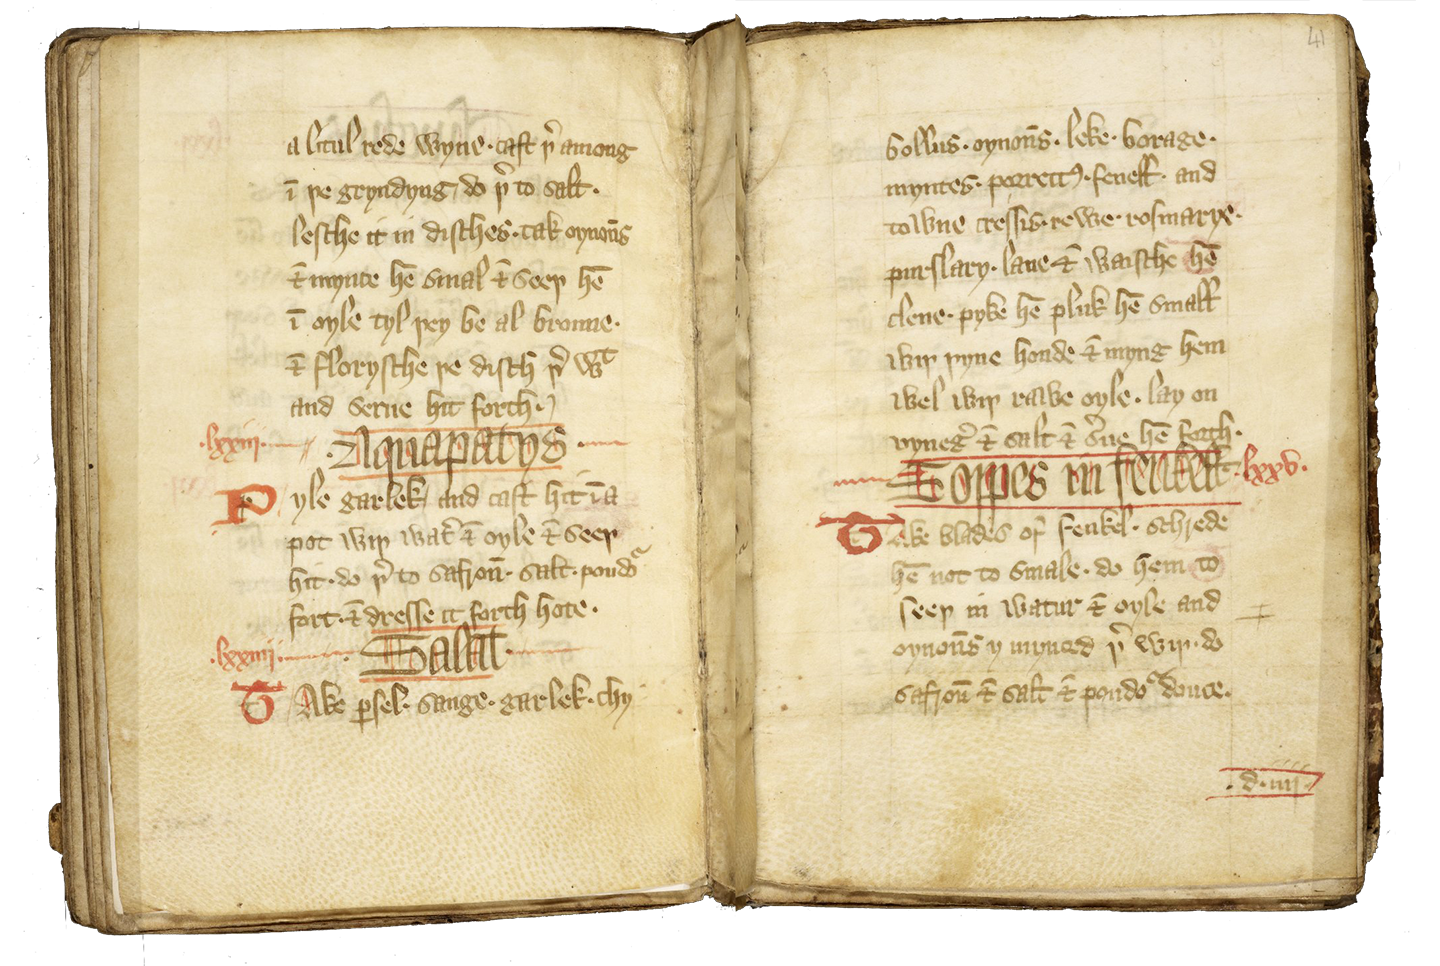 a litul rede wyne · cast þ̉ among
ī þe gryndyng do þ̉ to salt ·
lesche it in disches · tak oynoūs
& mynte hē smal & seeþ hē
ī oyle tyl þey be al broune ·
& florysche þe disch þ̉ wᵗ
and serue hit forth ·
·lxxiii· Aquapatys ·
Pyle garlek and cast hit ī a
pot wiþ wat̉ & oyle & seeþ
hit · do þ̉ to safroū · salt · poudoᵘ
fort · & dresse it forth hote ·
·lxxiiii· Salat ·
Take p̲sel · sauge · garlek · chy
41
bollus · oynoūs · leke · borage ·
myntes · porrettꝰ · fenell · and
towne cressis · rewe · rosmarye ·
purslary · laue & waische hē
clene · pyke hē pluk hē small
wiþ þyne honde & myng hem
wel wiþ rawe oyle · lay on
vyneg̉ & salt & s̉ue hē forth ·
Soppes in fenkell · lxxv ·
Take blades of fenkel · schrede
hē not to smale · do hem to
seeþ in watur & oyle and
oynoūs y mynced þ̉ wiþ · do
safroū & salt & poudoᵘ douce ·
· d · iiii ·